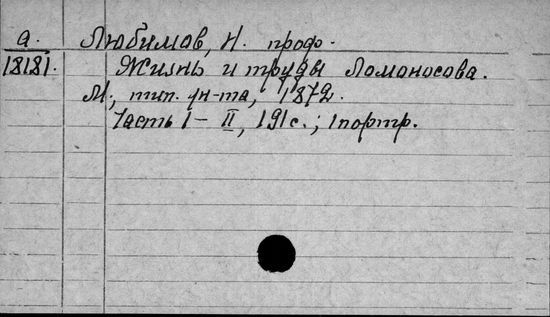 а. Любимов, Н. проф.
18181. Жизнь и труды Ломоносова.
М; тип. ун-та, 1872.
Часть I - II, 191 с.; 1 портр.